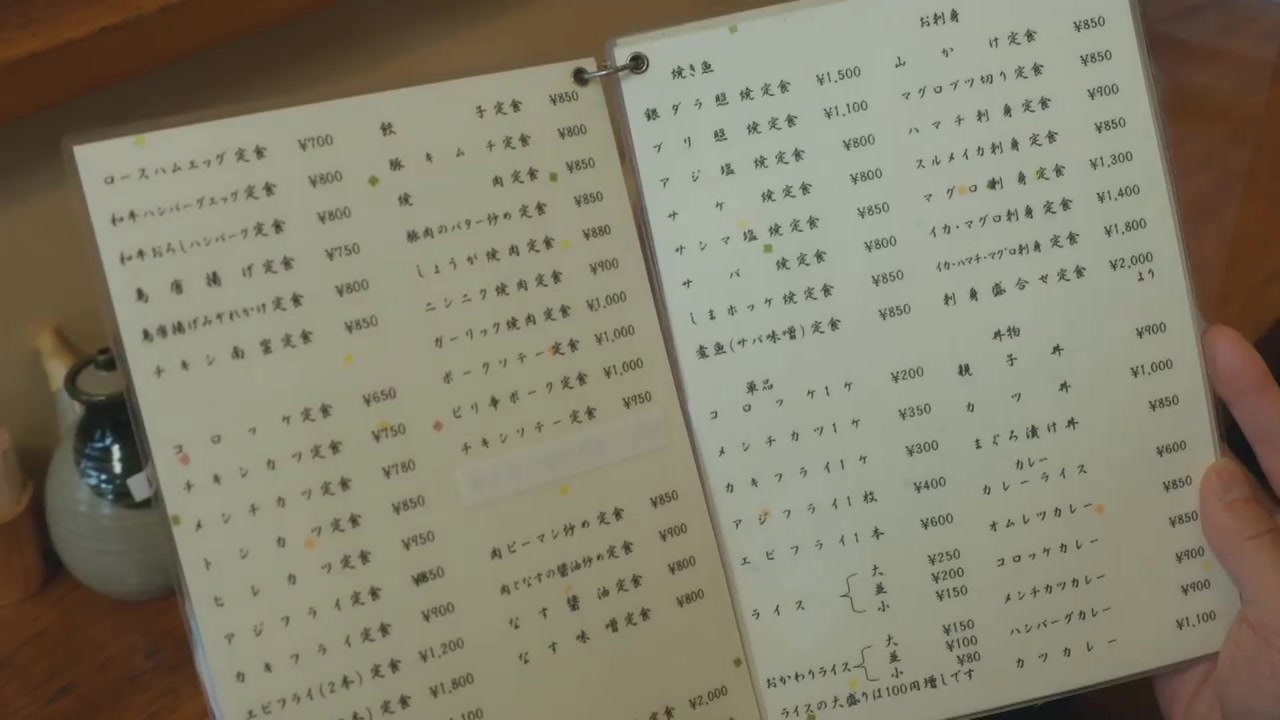 ロースハムエッグ定食 ¥700
和牛ハンバーグエッグ定食 ¥800
和牛おろしハンバーグ定食 ¥800
鳥唐揚げ定食 ¥750
鳥唐揚げみぞれかけ定食 ¥800
チキン南蛮定食 ¥850
コロッケ定食 ¥650
チキンカツ定食 ¥750
メンチカツ定食 ¥780
トンカツ定食 ¥850
ヒレカツ定食 ¥950
アジフライ定食 ¥850
カキフライ定食 ¥900
エビフライ(2本)定食 ¥1,200
本)定食 ¥1,800
¥1,100
餃子定食 ¥850
豚キムチ定食 ¥800
焼肉定食 ¥850
豚肉のバター炒め定食 ¥850
しょうが焼肉定食 ¥880
ニンニク焼肉定食 ¥900
ガーリック焼肉定食 ¥1,000
ポークソテー定食 ¥1,000
ピリ辛ポーク定食 ¥1,000
チキンソテー定食 ¥950
肉ピーマン炒め定食 ¥850
肉となすの醤油炒め定食 ¥900
なす醤油定食 ¥800
なす味噌定食 ¥800
定食 ¥2,000
焼き魚
銀ダラ照焼定食 ¥1,500
ブリ照焼定食 ¥1,100
アジ塩焼定食 ¥800
サケ焼定食 ¥800
サンマ塩焼定食 ¥850
サバ焼定食 ¥800
しまホッケ焼定食 ¥850
煮魚(サバ味噌)定食 ¥850
単品
コロッケ1ケ ¥200
メンチカツ1ケ ¥350
カキフライ1ケ ¥300
アジフライ1枚 ¥400
エビフライ1本 ¥600
ライス 大 ¥250
並 ¥200
小 ¥150
おかわりライス 大 ¥150
並 ¥100
小 ¥80
ライスの大盛りは100円増しです
お刺身
山かけ定食 ¥850
マグロブツ切り定食 ¥850
ハマチ刺身定食 ¥900
スルメイカ刺身定食 ¥850
マグロ刺身定食 ¥1,300
イカ・マグロ刺身定食 ¥1,400
イカ・ハマチ・マグロ刺身定食 ¥1,800
刺身盛合せ定食 ¥2,000より
丼物
親子丼 ¥900
カツ丼 ¥1,000
まぐろ漬け丼 ¥850
カレー
カレーライス ¥600
オムレツカレー ¥850
コロッケカレー ¥850
メンチカツカレー ¥900
ハンバーグカレー ¥900
カツカレー ¥1,100